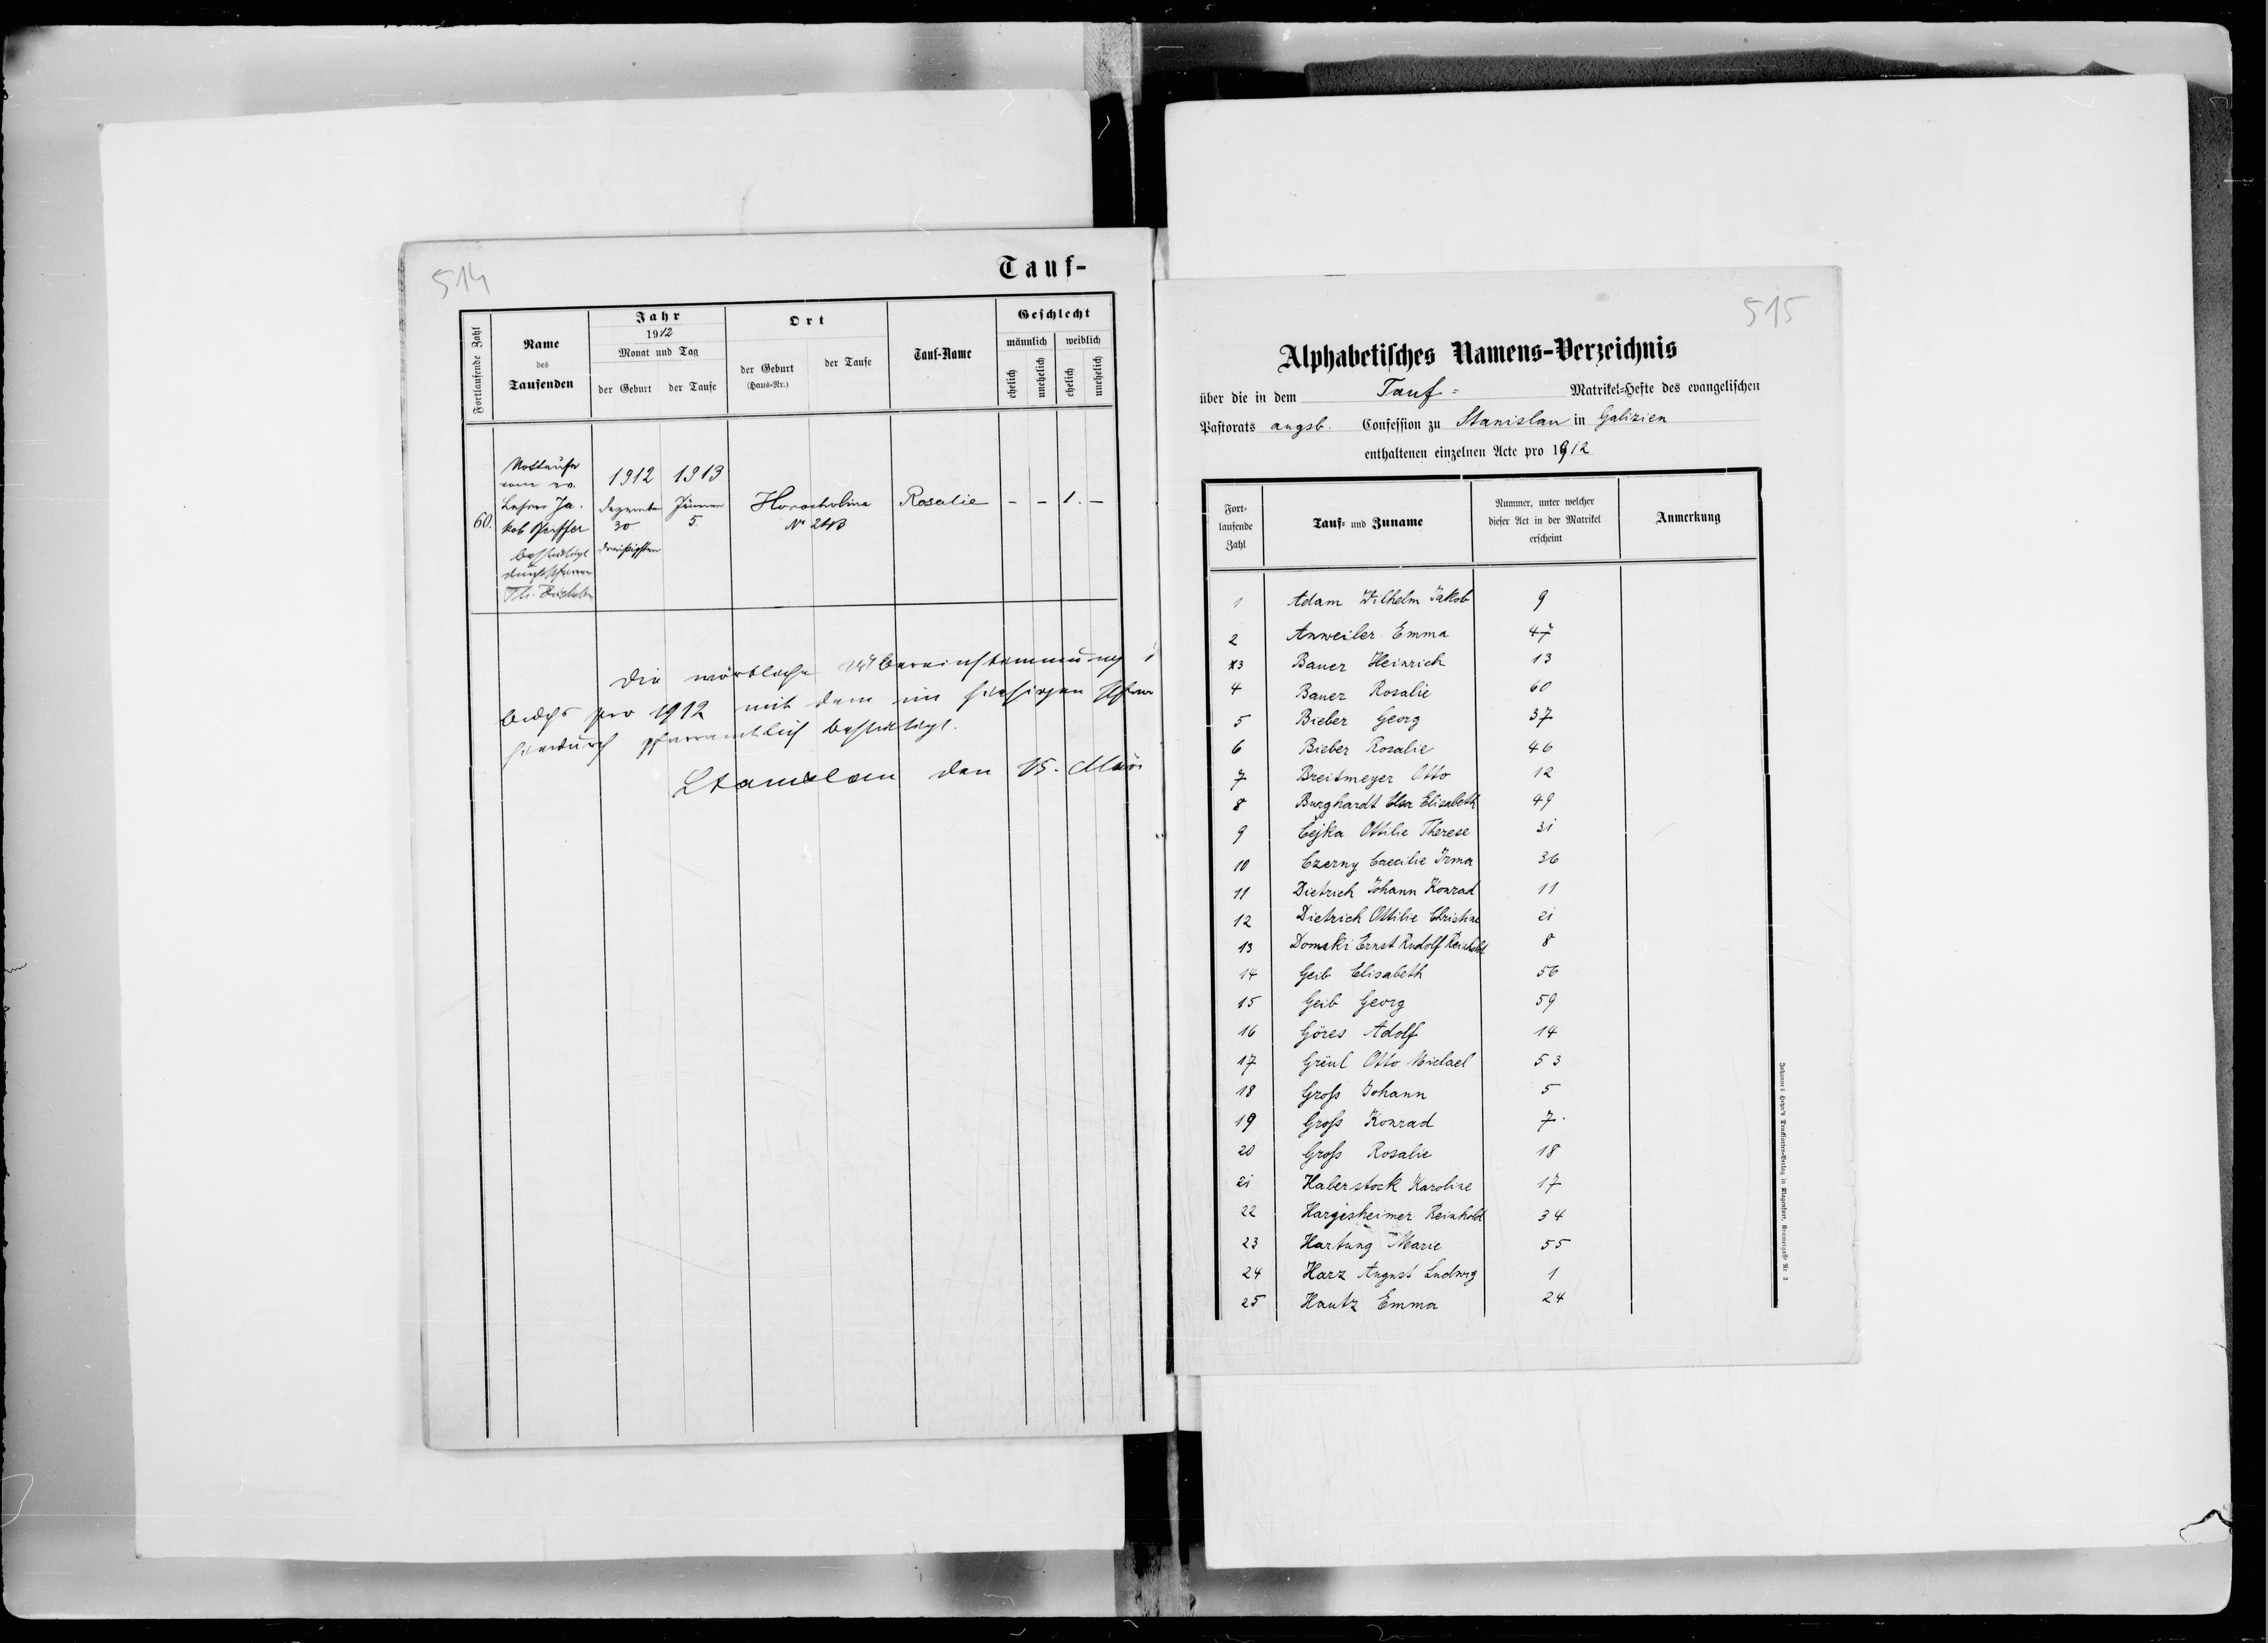 514
Tauf-
Fortlaufende Zahl
Name
des
Taufenden
Jahr
1912
Monat und Tag
der Geburt
der Taufe
Ort
der Geburt
(Haus-Nr.)
der Taufe
Tauf-Name
Geschlecht
männlich
weiblich
ehelich
unehelich
ehelich
unehelich
60.
Nottaufe
vom ev.
Lehrer Ja-
kob Pfeiffer
bestätigt
durch Pfarrer
Th. Zöckler
1912
Dezember
30
dreißigsten
1913
Jänner
5.
Horocholina
Nr 243
Rosalie
- - 1. -
Die wörtliche Übereinstimmung
buchs pro 1912 mit dem im hiesigen Pfarr
hierdurch pfarramtlich bestätigt.
Stanislau den 15. März
515
Alphabetisches Namens-Verzeichnis
über die in dem Tauf- Matrikel-Hefte des evangelischen
Pastorats augsb. Confession zu Stanislau in Galizien
enthaltenen einzelnen Acte pro 1912
Fort-
laufende
Zahl
Tauf- und Zuname
Nummer, unter welcher
dieser Act in der Matrikel
erscheint
Anmerkung
1 Adam Wilhelm Jakob 9
2 Anweiler Emma 47
3 Bauer Heinrich 13
4 Bauer Rosalie 60
5 Bieber Georg 37
6 Bieber Rosalie 46
7 Breitmeyer Otto 12
8 Burghardt Elsa Elisabeth 49
9 Cejka Ottilie Therese 31
10 Czerny Caecilie Irma 36
11 Dietrich Johann Konrad 11
12 Dietrich Ottilie Christine 21
13 Domski Ernst Rudolf Reinhold 8
14 Geib Elisabeth 56
15 Geib Georg 59
16 Göres Adolf 14
17 Greul Otto Michael 53
18 Groß Johann 5
19 Groß Konrad 7.
20 Groß Rosalie 18
21 Haberstock Karoline 17
22 Hargesheimer Reinhold 34
23 Hartung Marie 55
24 Harz August Ludwig 1
25 Hautz Emma 24